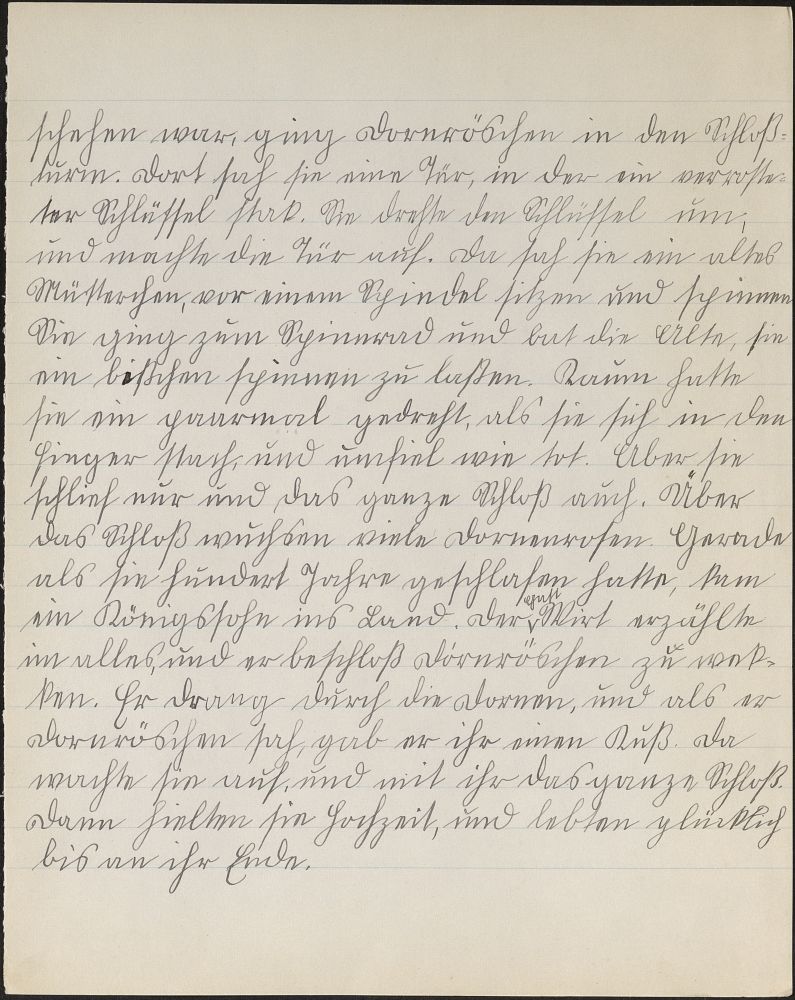 schehen war, ging Dornröschen in den Schloß-
turm. Dort sah sie eine Tür, in der ein verroste-
ter Schlüssel stak. Sie drehte den Schlüssel um,
und machte die Tür auf. Da sah sie ein altes
Mütterchen, vor einem Spindel sitzen und spinnen
Sie ging zum Spinnrad und bat die Alte, sie
ein bißchen spinnen zu laßen. Kaum hatte
sie ein paarmal gedreht, als sie sich in den
Finger stach, und umfiel wie tot. Aber sie
schlief nur und das ganze Schloß auch. Über
das Schloß wuchsen viele Dornenrosen. Gerade
als sie hundert Jahre geschlafen hatte, kam
ein Königssohn ins Land. Der Gast Wirt erzählte
im alles, und er beschloß Dornröschen zu wek-
ken. Er drang durch die Dornen, und als er
Dornröschen sah, gab er ihr einen Kuß. Da
wachte sie auf, und mit ihr das ganze Schloß.
Dann hielten sie Hochzeit, und lebten glücklich
bis an ihr Ende.